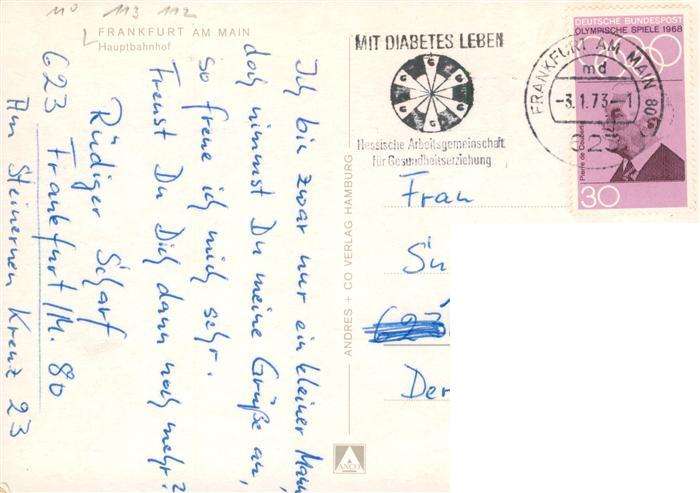 110 113 112
FRANKFURT AM MAIN
Hauptbahnhof
Ich bin zwar nur ein kleiner Mann,
doch nimmst Du meine Grüße an,
so freue ich mich sehr.
Freust Du Dich dann noch mehr?
Rüdiger Scharf
623 Frankfurt/M. 80
Am Steinernen Kreuz 23
ANDRES + CO VERLAG HAMBURG
ANCO
MIT DIABETES LEBEN
Hessische Arbeitsgemeinschaft
für Gesundheitserziehung
FRANKFURT AM MAIN 80
md
-3.1.73-1
623
DEUTSCHE BUNDESPOST
OLYMPISCHE SPIELE 1968
Pierre de Coubertin
30
Frau
Su
623
Der